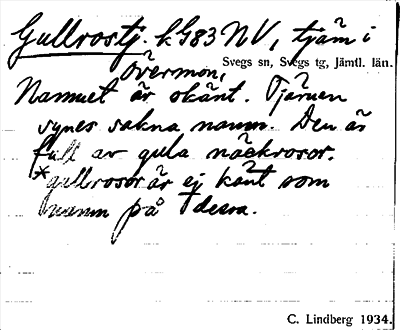 Gullrostj. k G83 NV, tjärn i
Övermon,
Svegs sn, Svegs tg, Jämtl. län.
Namnet är okänt. Tjärnen
synes sakna namn. Den är
full av gula näckrosor.
*gullrosor är ej känt som
namn på dessa.
C. Lindberg 1934.